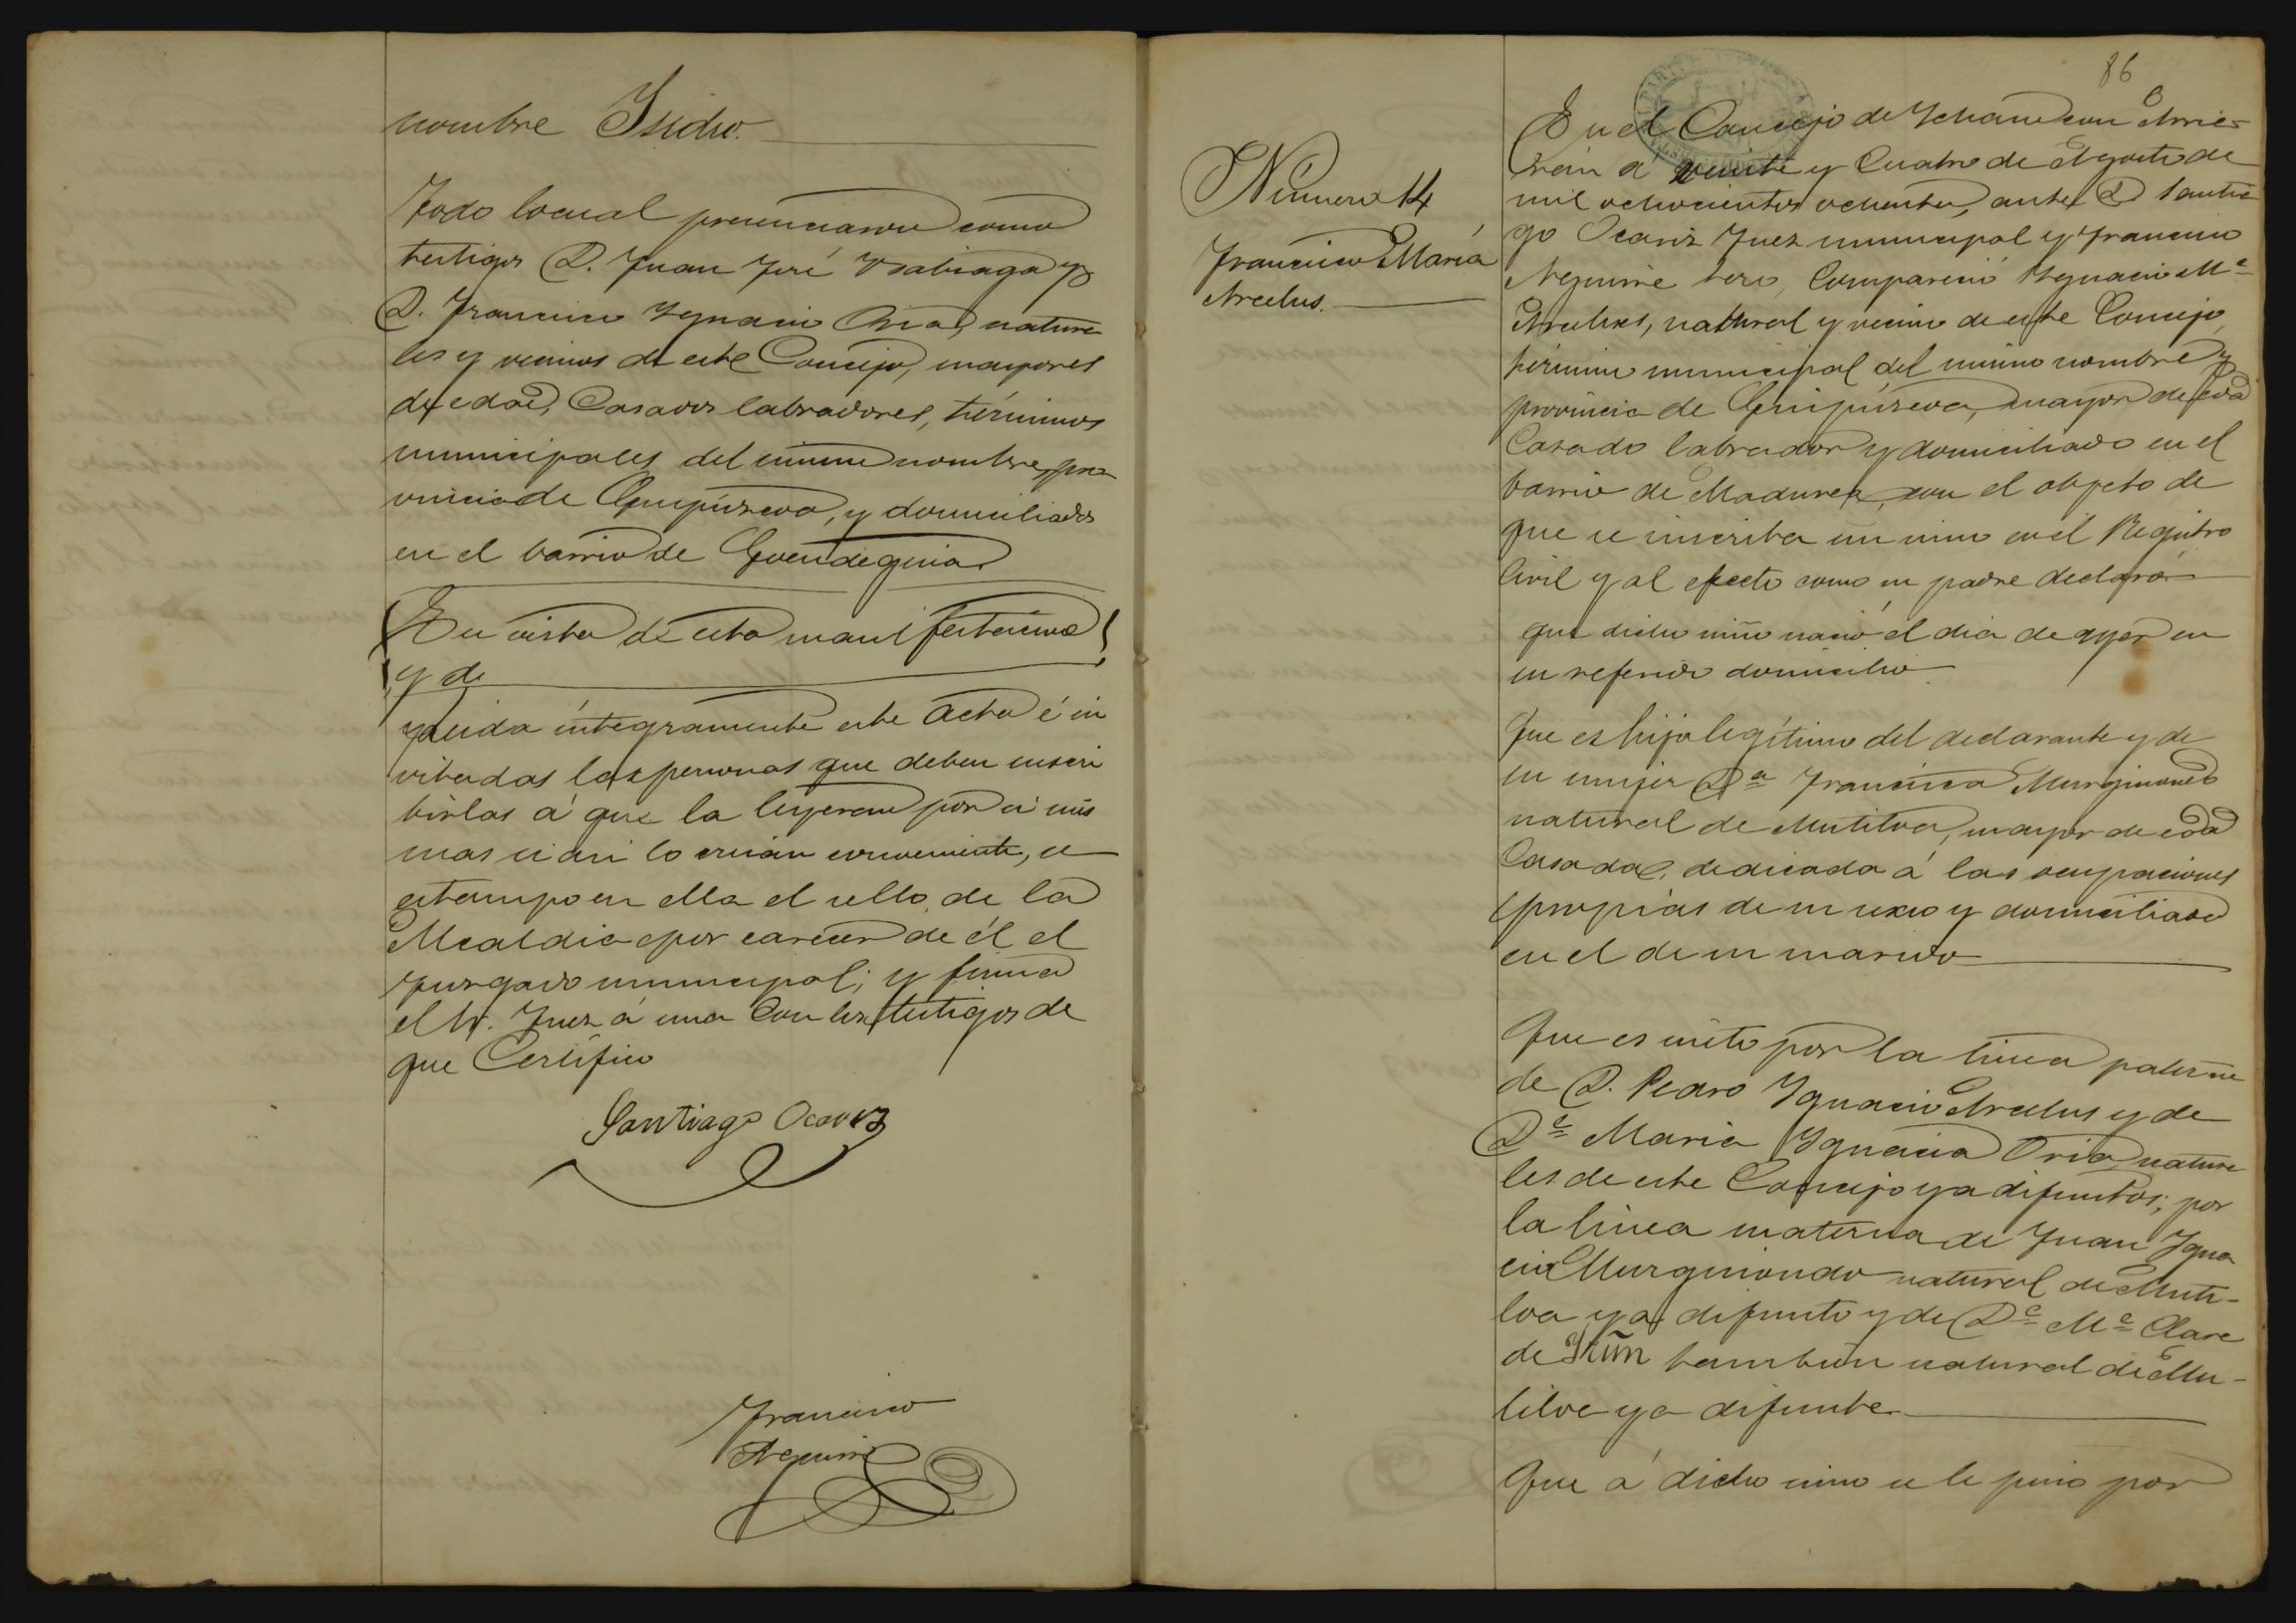 nombre Isidro.
Todo lo cual presenciaron como
testigos D. Juan José Usabiaga y
D. Francisco Ygnacio Oria, natura
les y vecinos de este Concejo, mayores
de edad, Casados labradores, términos
municipales del mismo nombre, pro
vincia de Guipúzcoa, y domiciliados
en el barrio de Goendeguia
En vista de esta manifestacion
y de
y leida íntegramente este Acta é in
vitadas las personas que deben suscri
birlas á que la leyeran por si mis
mas si asi lo creian conveniente, se
estampo en ella el sello de la
Alcaldia por carecer de él el
juzgado municipal; y firma
el Sr. Juez á una con los testigos de
que Certifico
Santiago Ocariz
Francisco
Aguirre
86
Número 14
Francisco María
Arcelus.
En el Concejo de Ychaso con Arrie-
rán á veinte y Cuatro de Agosto de
mil ochocientos ochenta, ante D Santia
go Ocariz Juez municipal y Francisco
Aguirre Srio, Compareció Ygnacio Mª
Arcelus, natural y vecino de este Concejo,
término municipal del mismo nombre y
provincia de Guipúzcoa, mayor de eda
Casado labrador y domiciliado en el
barrio de Madurea, con el objeto de
que se inscriba un niño en el Registro
Civil y al efecto como su padre declaró
que dicho niño nació el dia de ayer en
su referido domicilio
Que es hijo legítimo del declarante y de
su mujer Dª Francisca Murgiondo
natural de Mutiloa, mayor de edad
Casada, dedicada á las ocupaciones
propias de su sexo y domiciliada
en el de su marido
Que es nieto por la linea paterna
de D. Pedro Ygnacio Arcelus y de
Dª Maria Ygnacia Oria natura
les de este Concejo ya difuntos; por
la linea materna de Juan Ygna
cio Murguiondo natural de Muti-
loa ya difunto y de Dª Mª Clara
de tambien natural de Mu-
tiloa ya difunta
Que á dicho niño se le puso por